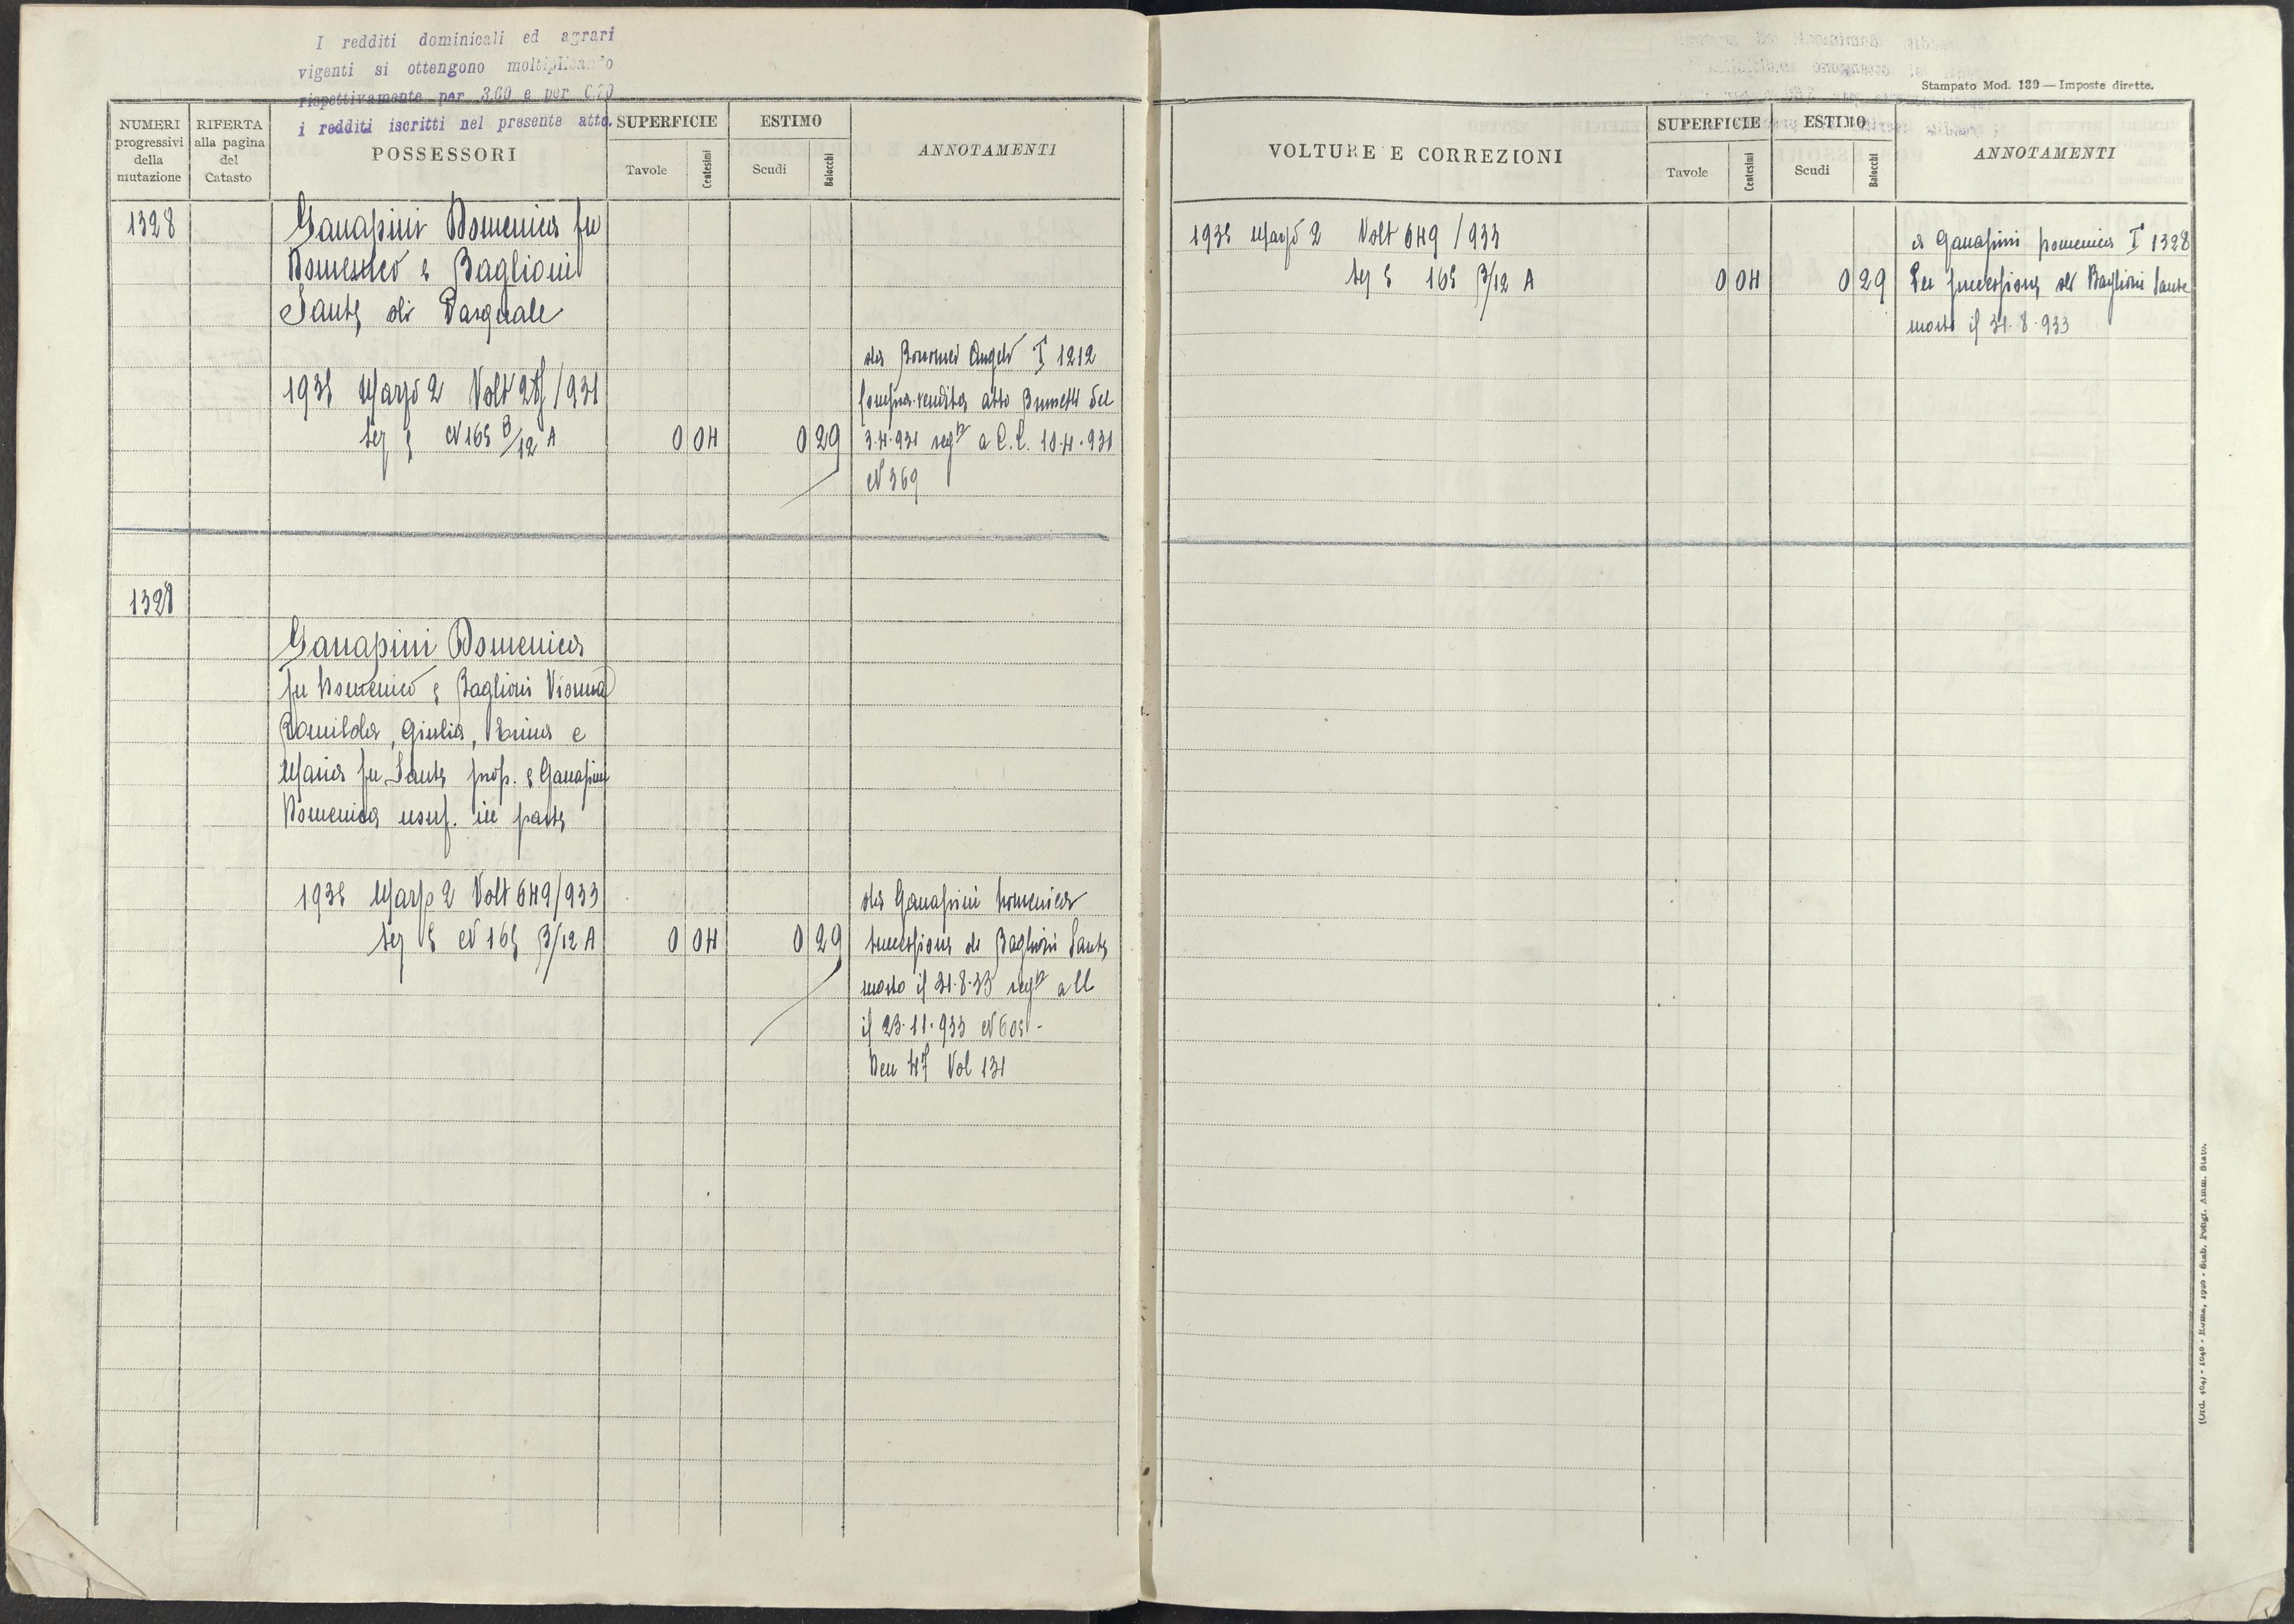 I redditi dominicali ed agrari
vigenti si ottengono moltiplicando
rispettivamente per 3,60 e per 0,70
i redditi iscritti nel presente atto.
NUMERI progressivi della mutazione
RIFERTA alla pagina del Catasto
POSSESSORI
SUPERFICIE
Tavole
Centesimi
ESTIMO
Scudi
Baiocchi
ANNOTAMENTI
1328
Ganapini Domenica fu
Domenico e Baglioni
Sante di Pasquale
da Angelo T 1212
1935 Marzo 2 Volt 27/931
Compra-vendita atto Brunetti del
Sez E N 165 B/12 A 0 04 0 29
3.4.931 reg° a C.C. 10.4.931
N 369
1328
Ganapini Domenica
fu Domenico e Baglioni
Romilda, Giulia, Enina e
Maria fu Sante prop. e Ganapini
Domenica usuf. in parte
1935 Marzo 2 Volt 649/933
da Ganapini Domenica
Sez E N 165 B/12 A 0 04 0 29
successione di Baglioni Sante
morto il 31.8.33 reg°
il 23.11.933
Den 47 Vol 131
Stampato Mod. 139 — Imposte dirette.
VOLTURE E CORREZIONI
SUPERFICIE
Tavole
Centesimi
ESTIMO
Scudi
Baiocchi
ANNOTAMENTI
1935 Marzo 2 Volt 649/933
a Ganapini Domenica T 1328
Sez E 165 B/12 A 0 04 0 29
Per successione di Baglioni Sante
morto il 31.8.933
(Ord. 104) - 1040 - Roma, 1920 - Stab. Poligr. Amm. Stato.